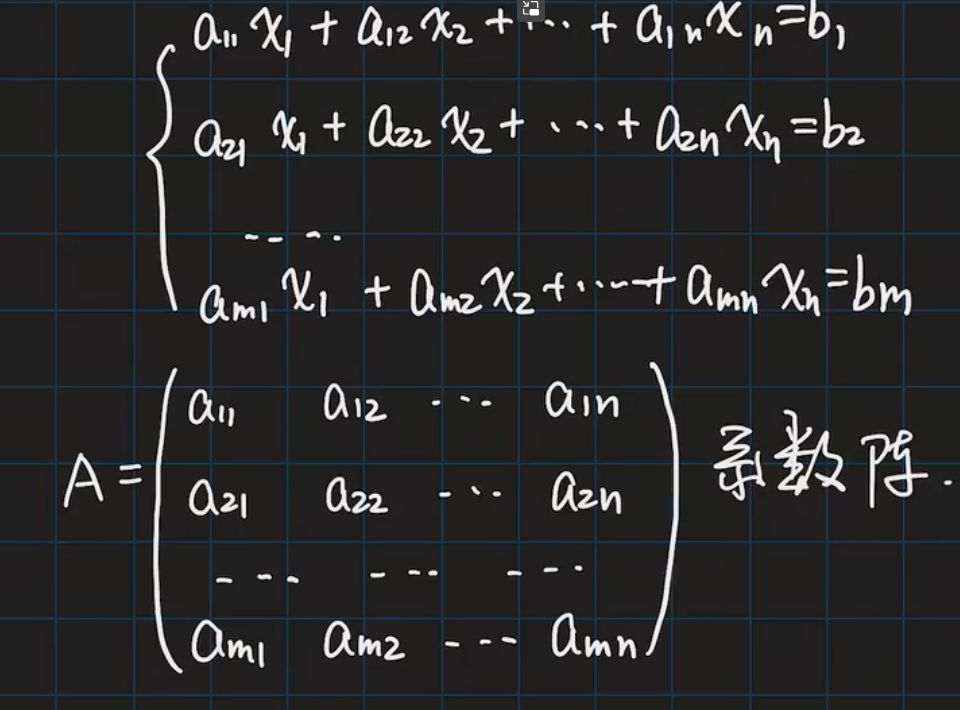 a₁₁ x₁ + a₁₂ x₂ + ··· + a₁ₙ xₙ = b₁
a₂₁ x₁ + a₂₂ x₂ + ··· + a₂ₙ xₙ = b₂
····
aₘ₁ x₁ + aₘ₂ x₂ + ··· + aₘₙ xₙ = bₘ
a₁₁ a₁₂ ··· a₁ₙ
A = a₂₁ a₂₂ ··· a₂ₙ 系数阵.
··· ··· ···
aₘ₁ aₘ₂ ··· aₘₙ